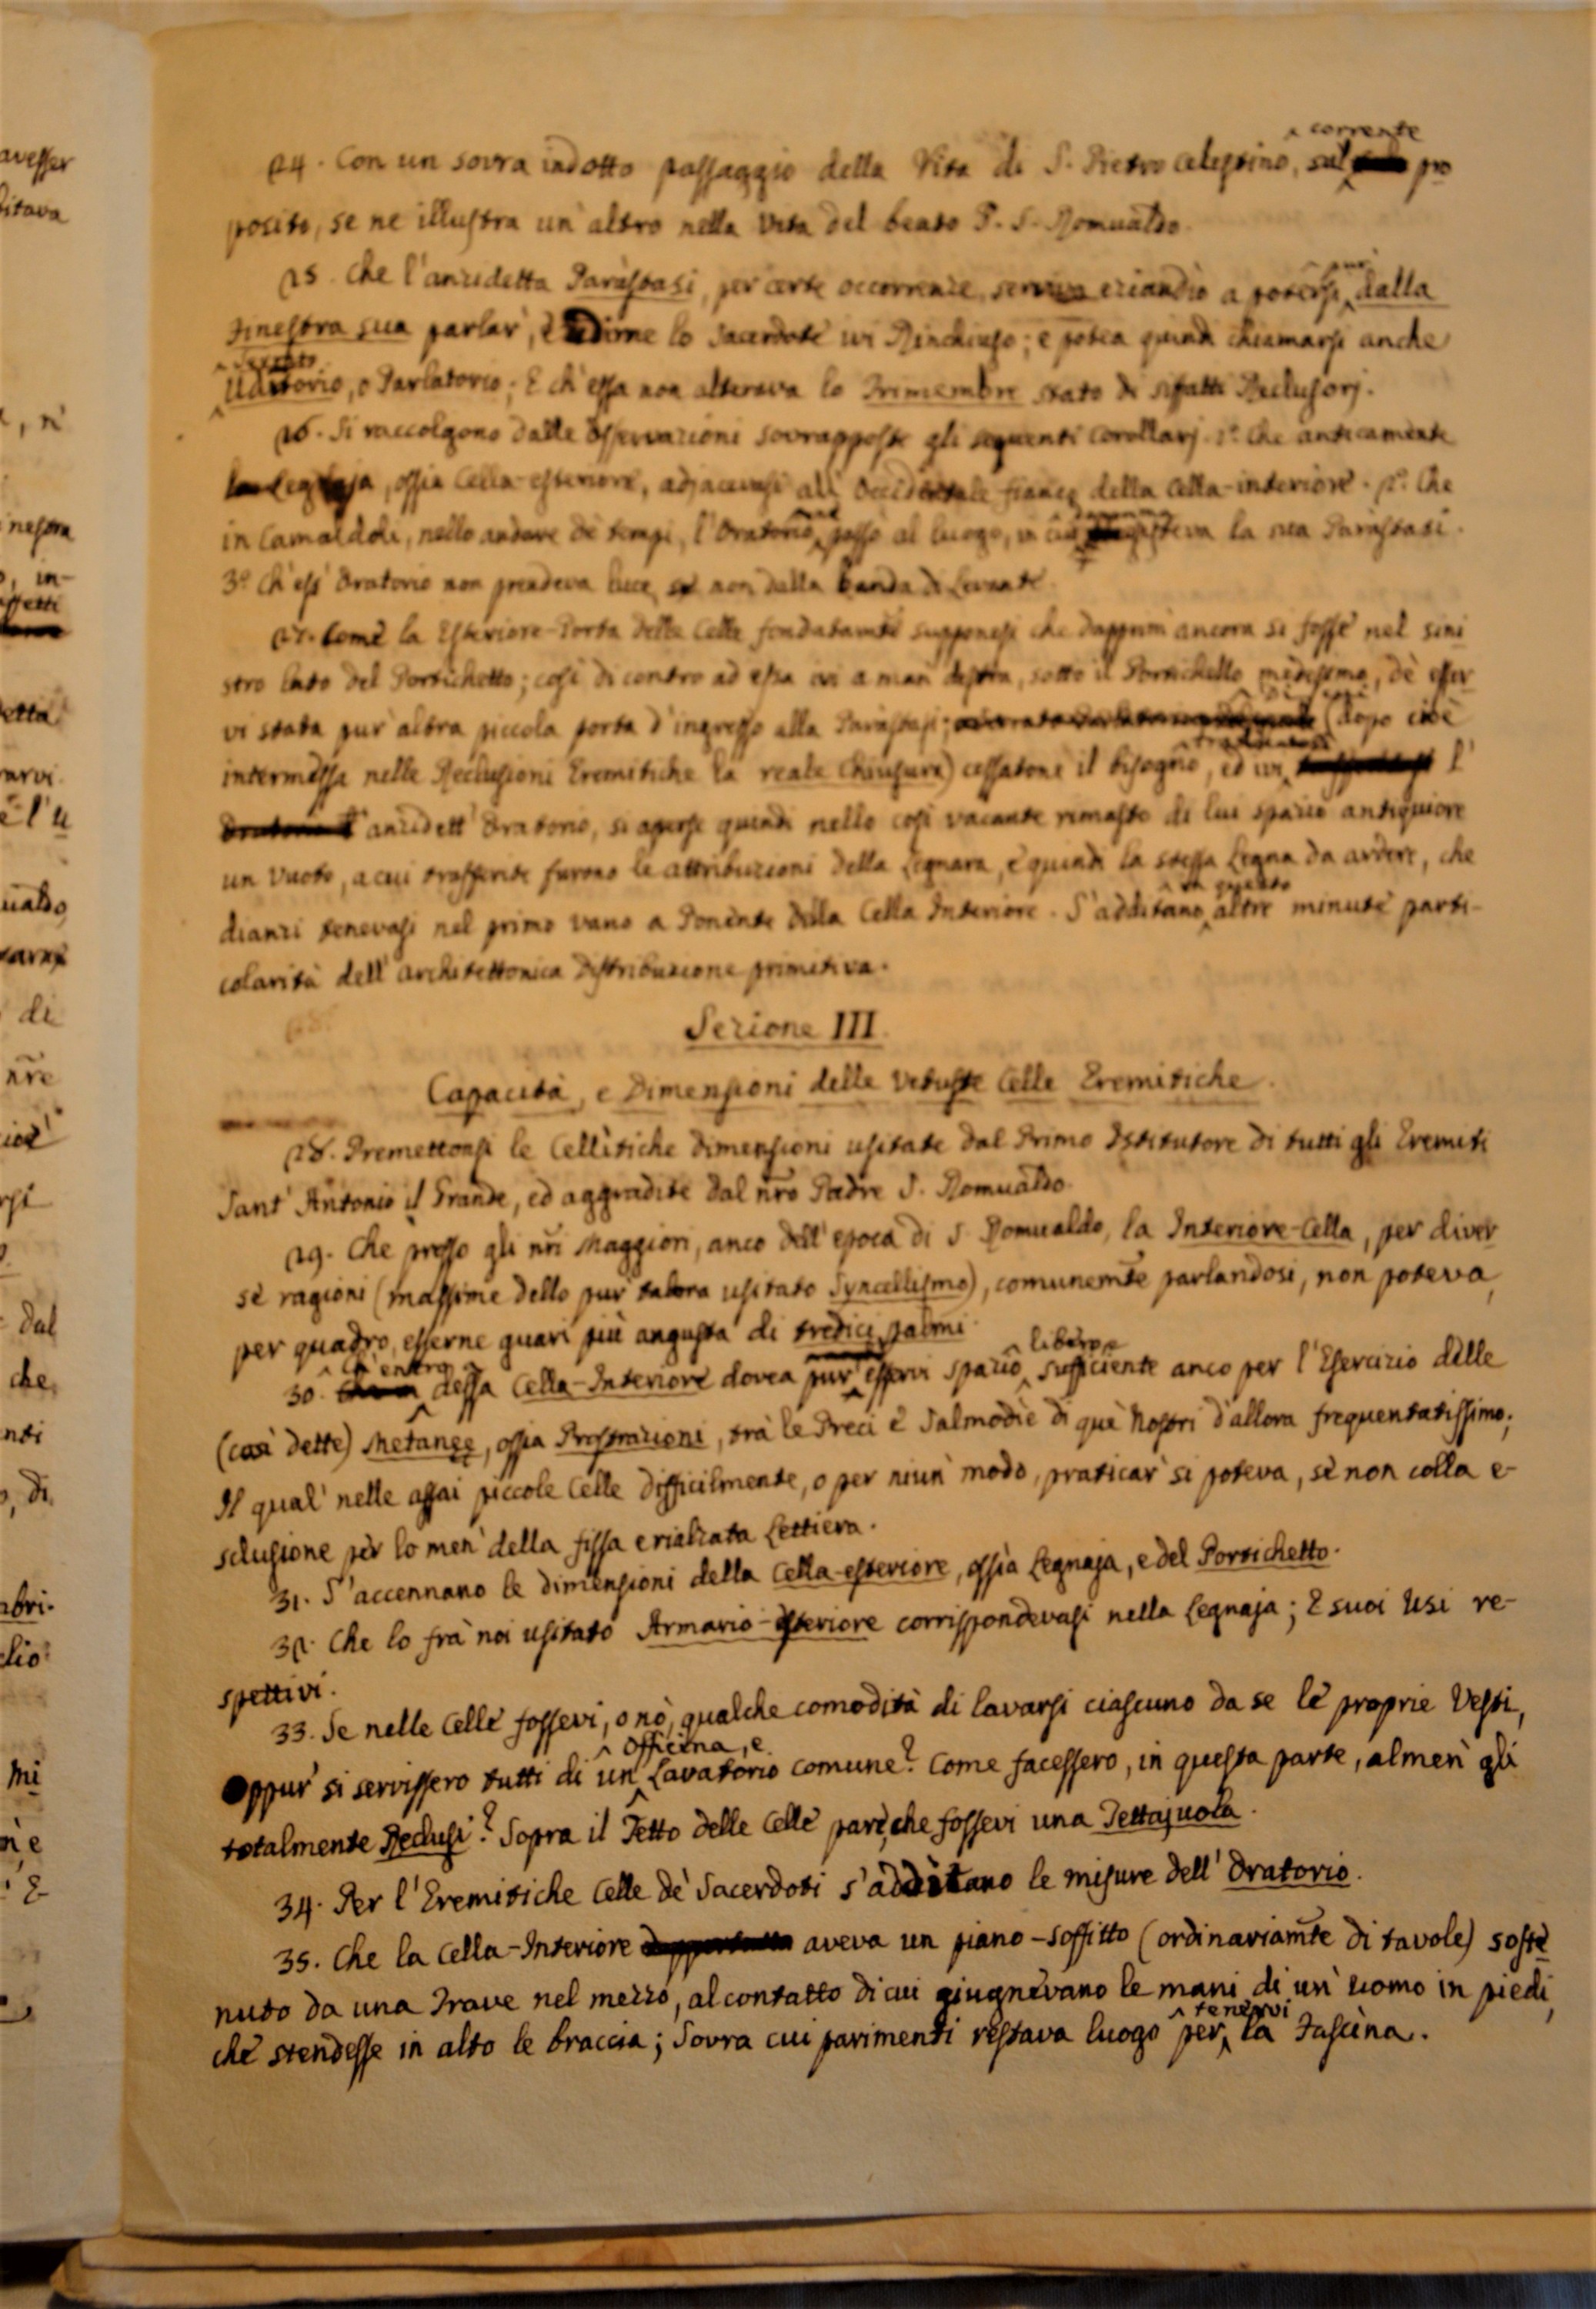 24. Con un sovra indotto passaggio della Vita di S. Pietro Celestino, sul corrente pro
posito, se ne illustra un' altro nella Vita del beato P. S. Romualdo.
25. Che l'anzidetta Paràstasi, per certe occorrenze, serviva eziandìo a potersi pur' dalla
Finestra sua parlar', e udirne lo Sacerdote ivi Rinchiuso; e potea quindi chiamarsi anche
Uditorio, o Parlatorio; E ch' essa non alterava lo Primembre stato di siffatti Reclusorj.
26. Si raccolgono dalle Osservazioni sovrapposte gli seguenti Corollarj. 1º. Che anticamente
la Legnaja, ossia Cella-esteriore, adjacevasi all' Occidentale fianco della Cella-interiore. 2º. Che
in Camaldoli, nello andare de' tempi, l'Oratorio passò al luogo, in cui la sua Paràstasi.
3º. Ch' ess' Oratorio non prendeva luce, se non dalla banda di Levante.
27. Come la Esteriore-Porta delle Celle fondatamte supponesi che dapprim' ancora si fosse nel sini
stro lato del Portichetto; così di contro ad essa ivi a man' destra, sotto il Portichetto medesimo, dè esser
vi stata pur' altra piccola porta d'ingresso alla Paràstasi; (dopo cioè
intermessa nelle Reclusioni Eremitiche la reale Chiusura) cessatone il bisogno, ed ivi l'
anzidett' Oratorio, si aperse quindi nello così vacante rimasto di lui spazio antiquiore
un Vuoto, a cui trasferite furono le attribuzioni della Legnara, e quindi la stessa Legna da ardere, che
dianzi tenevasi nel primo vano a Ponente della Cella Interiore. S'additano in questo altre minute parti-
colarità dell' architettonica Distribuzione primitiva.
Sezione III.
Capacità, e Dimensioni delle Vetuste Celle Eremitiche.
28. Premettonsi le Cellìtiche Dimensioni usitate dal Primo Istitutore di tutti gli Eremiti
Sant' Antonio il Grande, ed aggradite dal nr̃o Padre S. Romualdo.
29. Che presso gli nr̃i Maggiori, anco dell' epoca di S. Romualdo, la Interiore-Cella, per diver
se ragioni (massime dello pur' talora usitato Syncellismo), comunemt̃e parlandosi, non poteva,
per quadro, esserne guari più angusta di tredici palmi.
30. Ch' entro dessa Cella-Interiore dovea pur' esservi spazio libero, e sufficiente anco per l'Esercizio delle
(così dette) Metanee, ossia Prostrazioni, trà le Preci e Salmodìe di què Nostri d'allora frequentatissimo;
Il qual' nelle assai piccole Celle difficilmente, o per niun' modo, praticar' si poteva, sè non colla e-
sclusione pèr lo men' della fissa e rialzata Lettiera.
31. S'accennano le dimensioni della Cella-esteriore, ossìa Legnaja, e del Portichetto.
32. Che lo frà noi usitato Armario-esteriore corrispondevasi nella Legnaja; E suoi Usi re-
spettivi.
33. Se nelle Celle fossevi, o nò, qualche comodità di lavarsi ciascuno da se le proprie Vesti,
Oppur' si servissero tutti di un' Officina, e Lavatorio comune? Come facessero, in questa parte, almen' gli
totalmente Reclusi? Sopra il Tetto delle Celle pare, che fossevi una Tettajuola.
34. Per l'Eremitiche Celle de' Sacerdoti s'additano le misure dell' Oratorio.
35. Che la Cella-Interiore aveva un piano-soffitto (ordinariamt̃e di tavole) soste
nuto da una Trave nel mezzo, al contatto di cui giugnevano le mani di un' Uomo in piedi,
che stendesse in alto le braccia; Sovra cui parimenti restava luogo per tenervi la Fascina.